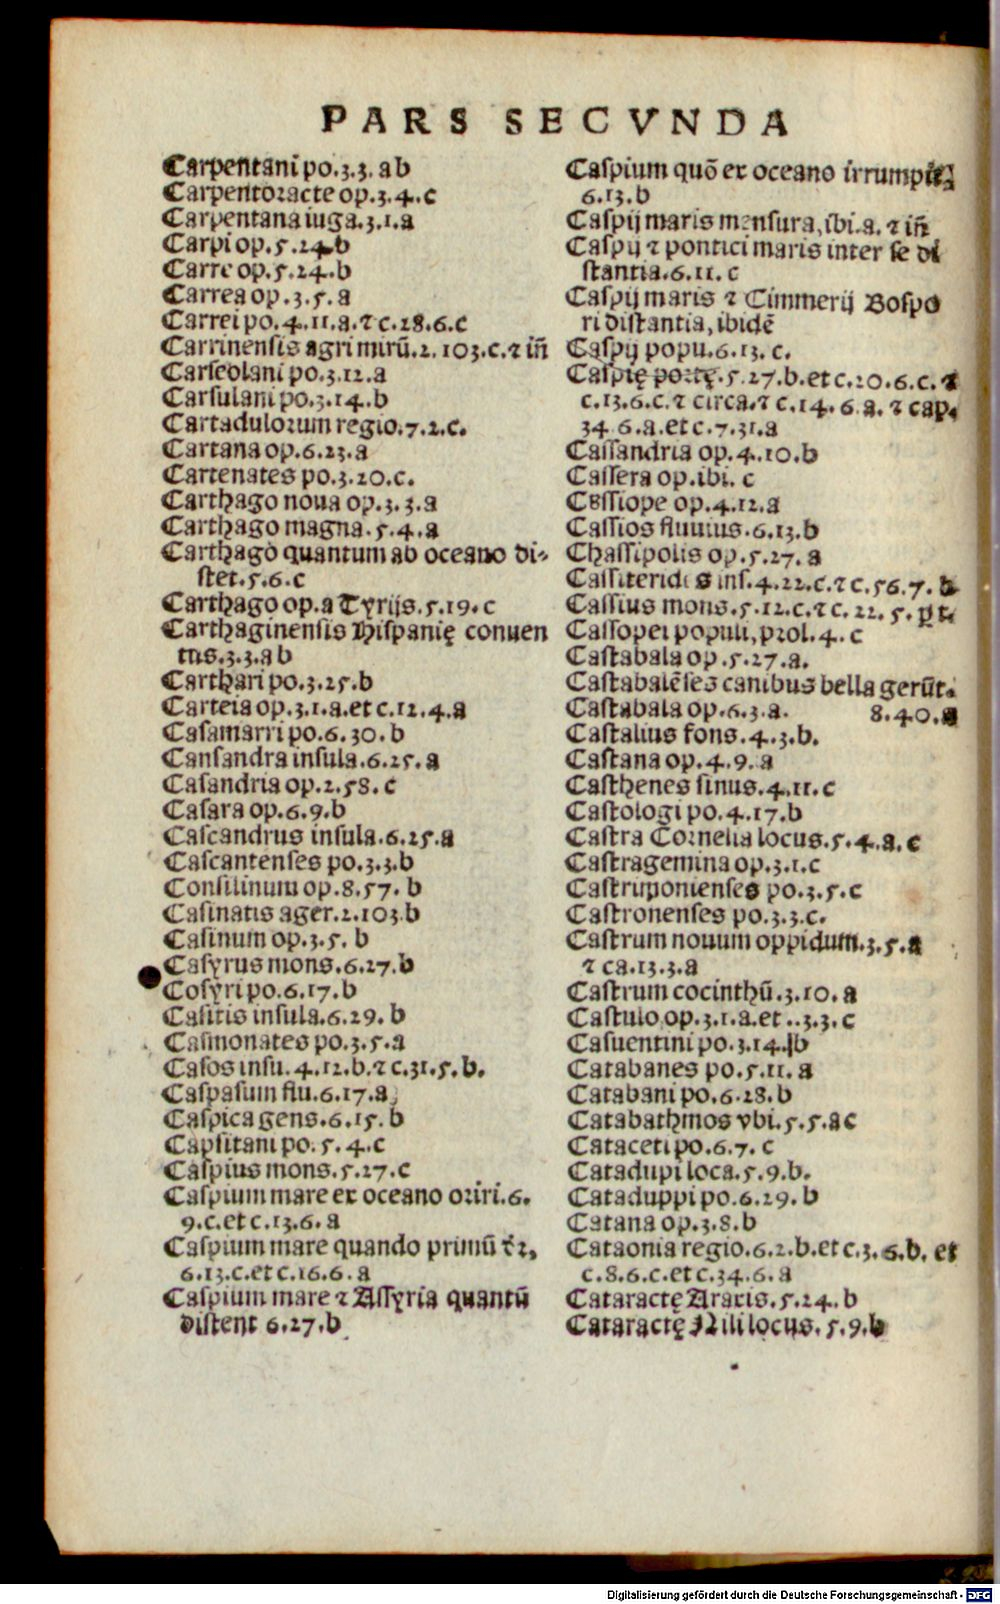 PARS SECVNDA
Carpentani po.3.3. ab
Carpentoracte op.3.4.c
Carpentana iuga.3.1.a
Carpi op.5.24.b
Carre op.5.24.b
Carrea op.3.5.a
Carrei po.4.11.a.⁊ c.28.6.c
Carrinensis agri mirũ.2.103.c.⁊ iñ
Carseolani po.3.12.a
Carsulani po.3.14.b
Cartadulorum regio.7.2.c.
Cartana op.6.23.a
Cartenates po.3.20.c.
Carthago noua op.3.3.a
Carthago magna.5.4.a
Carthago quantum ab oceano di-
stet.5.6.c
Carthago op.a Tyrijs.5.19.c
Carthaginensis Hispanię conuen
tus.3.3.a b
Carthari po.3.25.b
Carteia op.3.1.a.et c.12.4.a
Casamarri po.6.30.b
Cansandra insula.6.25.a
Casandria op.2.58.c
Casara op.6.9.b
Cascandrus insula.6.25.a
Cascantenses po.3.3.b
Consilinum op.8.57.b
Casinatis ager.2.103.b
Casinum op.3.5. b
Casyrus mons.6.27.b
Cosyri po.6.17.b
Casitis insula.6.29. b
Casmonates po.3.5.a
Casos insu.4.12.b.⁊ c.31.5.b.
Caspasum flu.6.17.a
Caspica gens.6.15.b
Capsitani po.5.4.c
Caspius mons.5.27.c
Caspium mare ex oceano oriri.6.
9.c.et c.13.6.a
Caspium mare quando primũ
6.13.c.et c.16.6.a
Caspium mare ⁊ Assyria quantũ
distent 6.27.b
Caspium quõ ex oceano irrumpit
6.13.b
Caspij maris mensura, ibi.a. ⁊ iñ
Caspij ⁊ pontici maris inter se di
stantia.6.11.c
Caspij maris ⁊ Cimmerij Bospo
ri distantia, ibidẽ
Caspij popu.6.13.c.
Caspię portę.5.27.b.et c.20.6.c.⁊
c.13.6.c.⁊ circa.⁊ c.14.6.a.⁊ cap.
34 6.a.et c.7.31.a
Cassandria op.4.10.b
Cassera op.ibi. c
Cassiope op.4.12.a
Cassios fluuius.6.13.b
Chassipolis op.5.27.a
Cassiterides ins.4.22.c.⁊ c.56.7.b
Cassius mons.5.12.c.⁊ c.22.5.
Cassopei populi, prol.4.c
Castabala op.5.27.a.
Castabalẽses canibus bella gerũt.
Castabala op.6.3.a. 8.40.a
Castalius fons.4.3.b.
Castana op.4.9.a
Casthenes sinus.4.11.c
Castologi po.4.17.b
Castra Cornelia locus.5.4.a.c
Castragemina op.3.1.c
Castrumonienses po.3.5.c
Castronenses po.3.3.c.
Castrum nouum oppidum.3.5.a
⁊ ca.13.3.a
Castrum cocinthũ.3.10.a
Castulo op.3.1.a.et ..3.3.c
Casuentini po.3.14.b
Catabanes po.5.11.a
Catabani po.6.28.b
Catabathmos vbi.5.5.a c
Cataceti po.6.7.c
Catadupi loca.5.9.b.
Cataduppi po.6.29.b
Catana op.3.8.b
Cataonia regio.6.2.b.et c.3.6.b. et
c.8.6.c.et c.34.6.a
Cataractę Araxis.5.24.b
Cataractę Nili locus.5.9.b
Digitalisierung gefördert durch die Deutsche Forschungsgemeinschaft - DFG